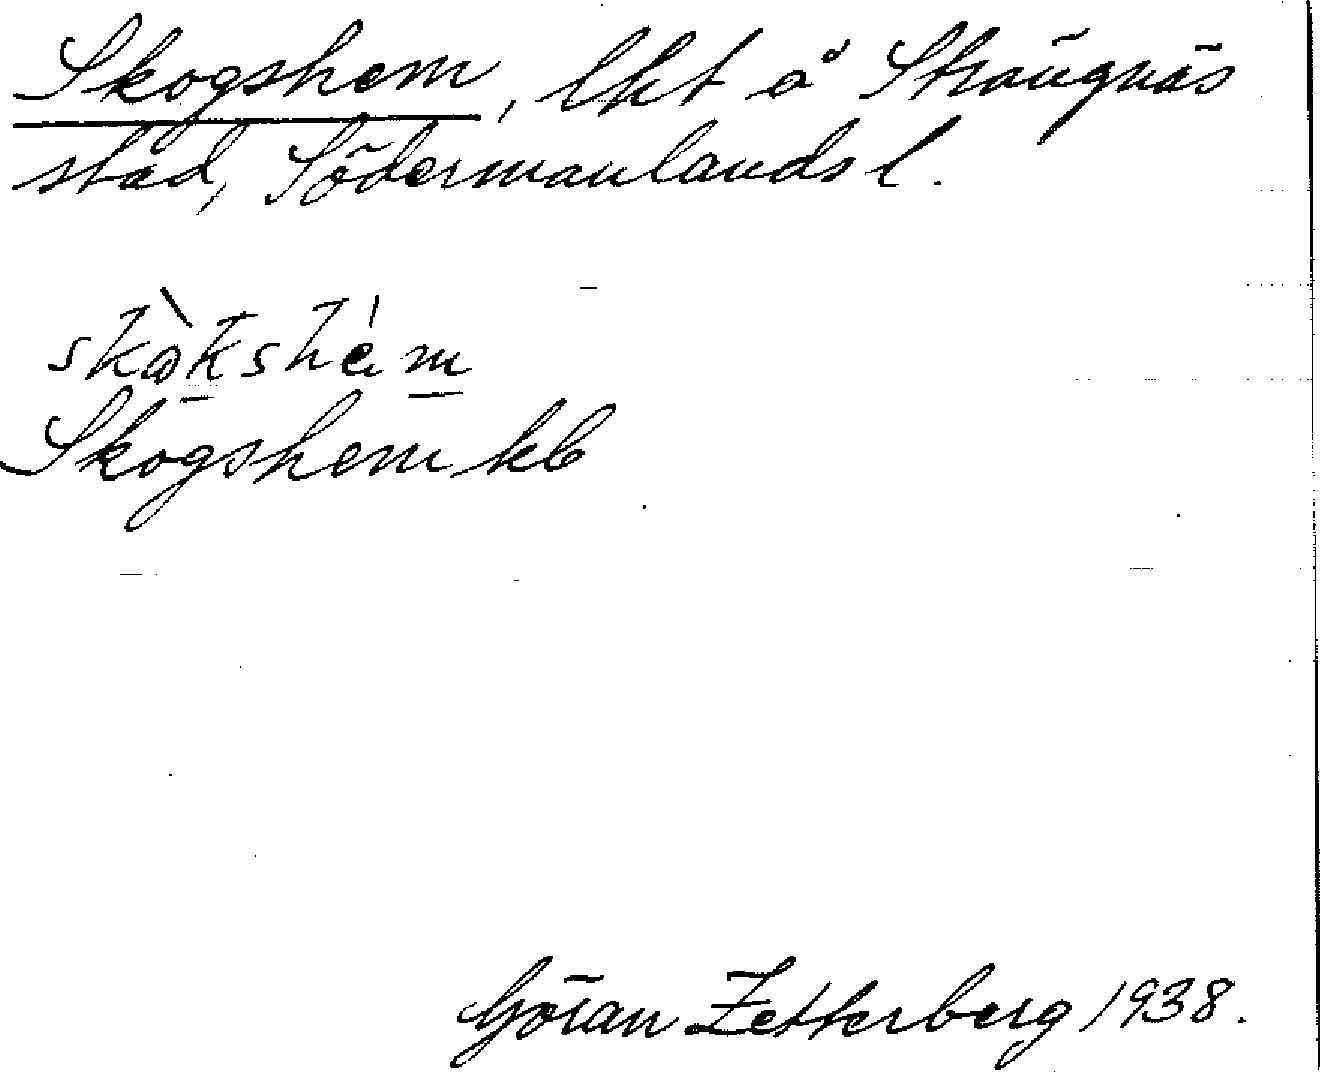 Skogshem, lht å Strängnäs
stad, Södermanlands l.
skòkshém
Skogshem kb
Göran Zetterberg 1938.